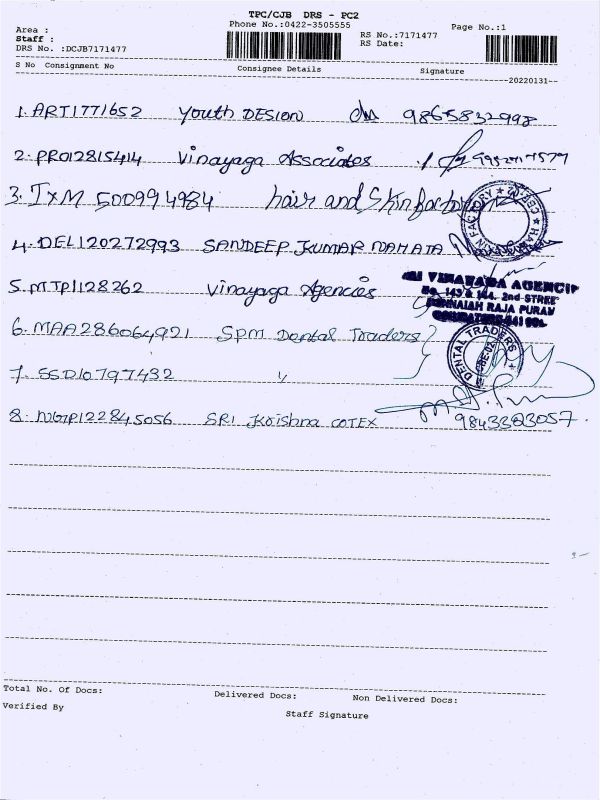 TPC/CJB DRS - PC2
Phone No.:0422-3505555
Page No.:1
Area :
Staff :
RS No.:7171477
DRS No. :DCJB7171477
RS Date:
S No Consignment No Consignee Details Signature
20220131
1. ART1771652 Youth DESIGN 9865832998
2. PRO12815414 Vinayaga Associates
3. IXM 500994984 hair and Skin factory
4. DEL120272993 SANDEEP KUMAR NAHATA
VINAYAGA AGENCIE
No. 143 & 144, 2nd STREE
RAJA PURAM
5. MTP1128262 Vinayaga Agencies
6. MAA286064921 SPM Dental Traders
DENTAL TRADERS
7. SSD10797432 "
8. NGTP122845056 SRI Krishna COTEX 9843323057
Total No. Of Docs: Delivered Docs: Non Delivered Docs:
Verified By
Staff Signature